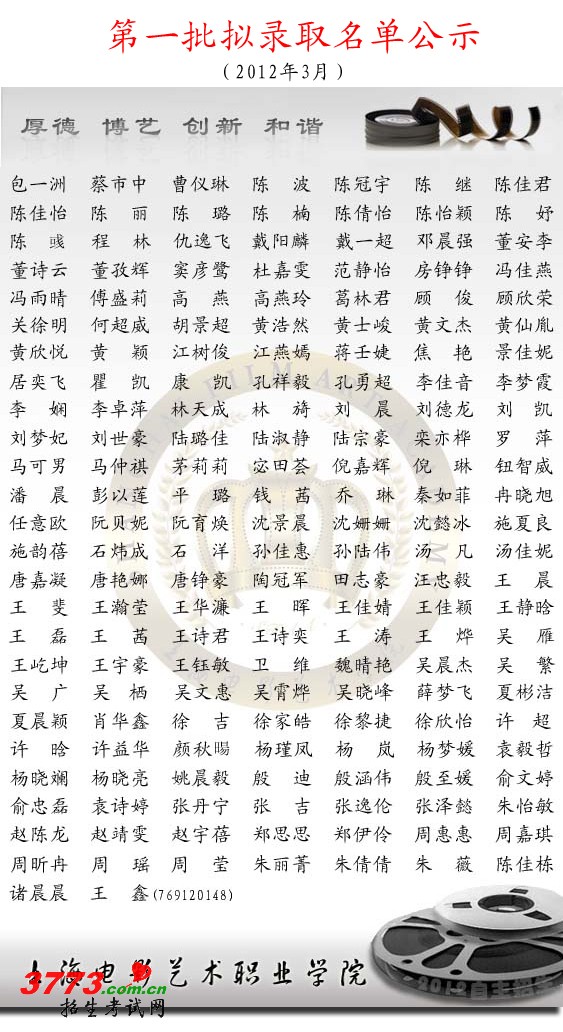 第一批拟录取名单公示
(2012年3月)
厚德 博艺 创新 和谐
包一洲 蔡市中 曹仪琳 陈 波 陈冠宇 陈 继 陈佳君
陈佳怡 陈 丽 陈 璐 陈 楠 陈倩怡 陈怡颖 陈 妤
陈 彧 程 林 仇逸飞 戴阳麟 戴一超 邓晨强 董安李
董诗云 董孜辉 窦彦鹭 杜嘉雯 范静怡 房铮铮 冯佳燕
冯雨晴 傅盛莉 高 燕 高燕玲 葛林君 顾 俊 顾欣荣
关徐明 何超威 胡景超 黄浩然 黄士峻 黄文杰 黄仙胤
黄欣悦 黄 颖 江树俊 江燕嫣 蒋壬婕 焦 艳 景佳妮
居奕飞 瞿 凯 康 凯 孔祥毅 孔勇超 李佳音 李梦霞
李 娴 李卓萍 林天成 林 旖 刘 晨 刘德龙 刘 凯
刘梦妃 刘世豪 陆璐佳 陆淑静 陆宗豪 栾亦桦 罗 萍
马可男 马仲祺 茅莉莉 宓田荟 倪嘉辉 倪 琳 钮智威
潘 晨 彭以莲 平 璐 钱 茜 乔 琳 秦如菲 冉晓旭
任意欧 阮贝妮 阮育焕 沈景晨 沈姗姗 沈懿冰 施夏良
施韵蓓 石炜成 石 洋 孙佳惠 孙陆伟 汤 凡 汤佳妮
唐嘉凝 唐艳娜 唐铮豪 陶冠军 田志豪 汪忠毅 王 晨
王 斐 王瀚莹 王华濂 王 晖 王佳婧 王佳颖 王静晗
王 磊 王 茜 王诗君 王诗奕 王 涛 王 烨 吴 雁
王屹坤 王宇豪 王钰敏 卫 维 魏晴艳 吴晨杰 吴 繁
吴 广 吴 栖 吴文惠 吴霄烨 吴晓峰 薛梦飞 夏彬洁
夏晨颖 肖华鑫 徐 吉 徐家皓 徐黎捷 徐欣怡 许 超
许 晗 许益华 颜秋暘 杨瑾凤 杨 岚 杨梦媛 袁毅哲
杨晓斓 杨晓亮 姚晨毅 殷 迪 殷涵伟 殷至媛 俞文婷
俞忠磊 袁诗婷 张丹宁 张 吉 张逸伦 张泽懿 朱怡敏
赵陈龙 赵靖雯 赵宇蓓 郑思思 郑伊伶 周惠惠 周嘉琪
周昕冉 周 瑶 周 莹 朱丽菁 朱倩倩 朱 薇 陈佳栋
诸晨晨 王 鑫(769120148)
上海电影艺术职业学院
2012自主招生
3773.com.cn
招生考试网